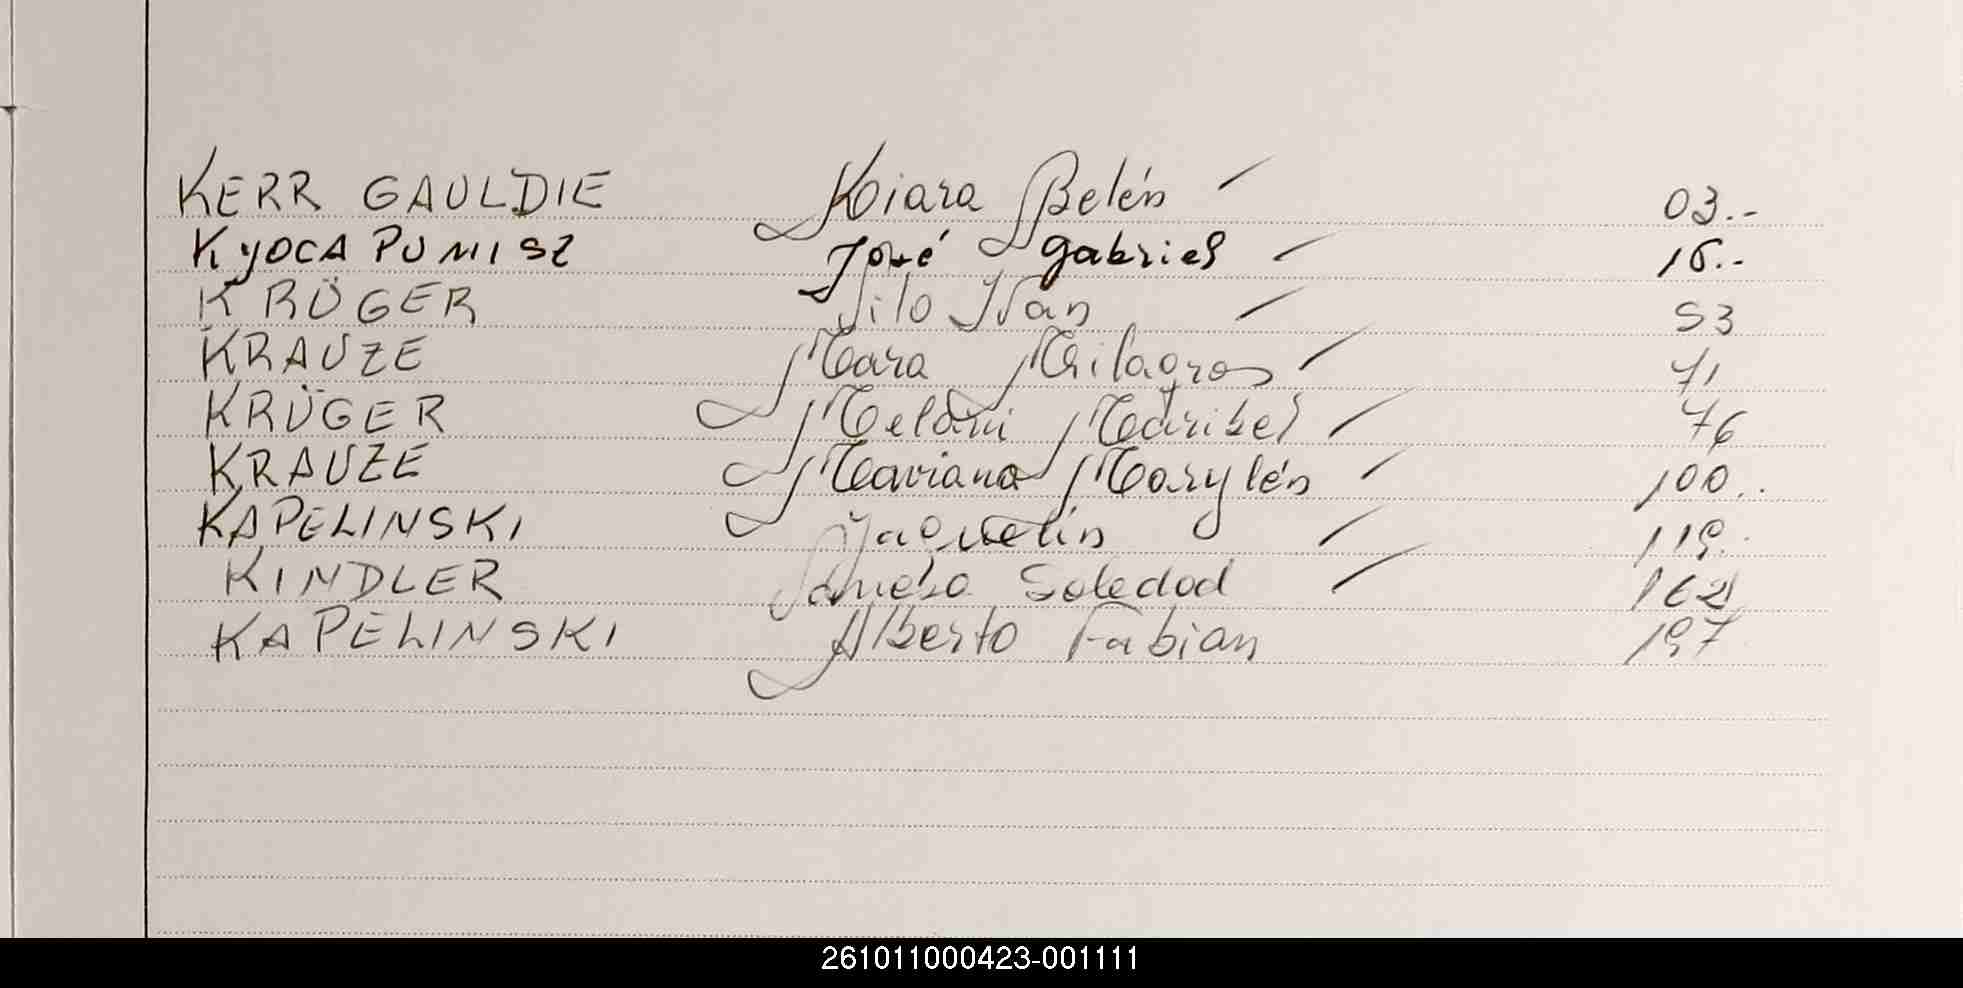 KERR GAULDIE Kiara Belén 03..
KYOCA PUMISZ José Gabriel 16..
KRÜGER Ivan 53
KRAUZE Mara Milagros 71
KRÜGER Melani Maribel 76
KRAUZE Mariana Marylén 100..
KAPELINSKI Jaquelin 119..
KINDLER Soledad 162
KAPELINSKI Alberto Fabian 197
261011000423-001111